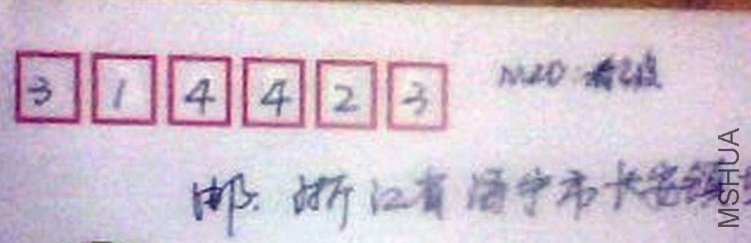 314423
邮: 浙江省海宁市长安镇
MSHUA